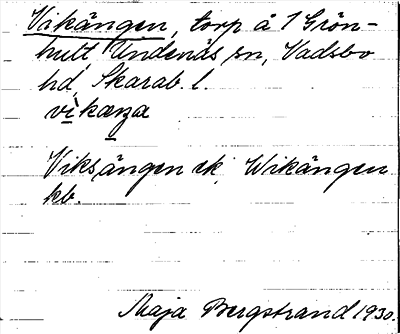 Vikängen, torp å 1 Grön-
hult, Undenäs sn, Vadsbo
hd, Skarab. l.
vìkæŋa
Viksängen ek, Wikängen
kb.
Maja Bergstrand 1930.